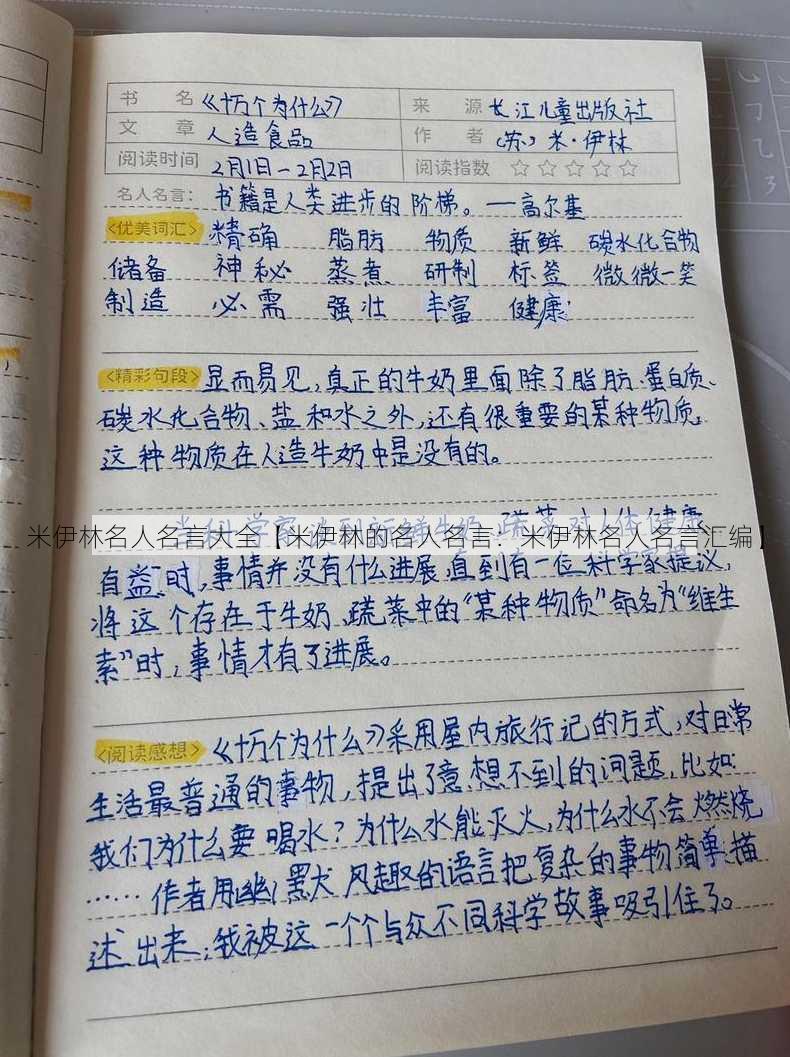 书 名 《十万个为什么》 来 源 长江儿童出版社
文 章 人造食品 作 者 (苏) 米·伊林
阅读时间 2月1日—2月2日 阅读指数 ☆☆☆☆☆
名人名言: 书籍是人类进步的阶梯。—高尔基
<优美词汇> 精确 脂肪 物质 新鲜 碳水化合物
储备 神秘 蒸煮 研制 标签 微微一笑
制造 必需 强壮 丰富 健康
<精彩句段> 显而易见,真正的牛奶里面除了脂肪、蛋白质、
碳水化合物、盐和水之外,还有很重要的某种物质,
这种物质在人造牛奶中是没有的。
当科学家谈到新鲜牛奶、蔬菜对人体健康
米伊林名人名言大全【米伊林的名人名言:米伊林名人名言汇编】
有益时,事情并没有什么进展,直到有一位科学家提议,
将这个存在于牛奶、蔬菜中的“某种物质”命名为“维生
素”时,事情才有了进展。
<阅读感想> 《十万个为什么》采用屋内旅行记的方式,对日常
生活最普通的事物,提出了意想不到的问题,比如:
我们为什么要喝水?为什么水能灭火,为什么水不会燃烧
……作者用幽默风趣的语言把复杂的事物简单描
述出来,我被这一个个与众不同科学故事吸引住了。